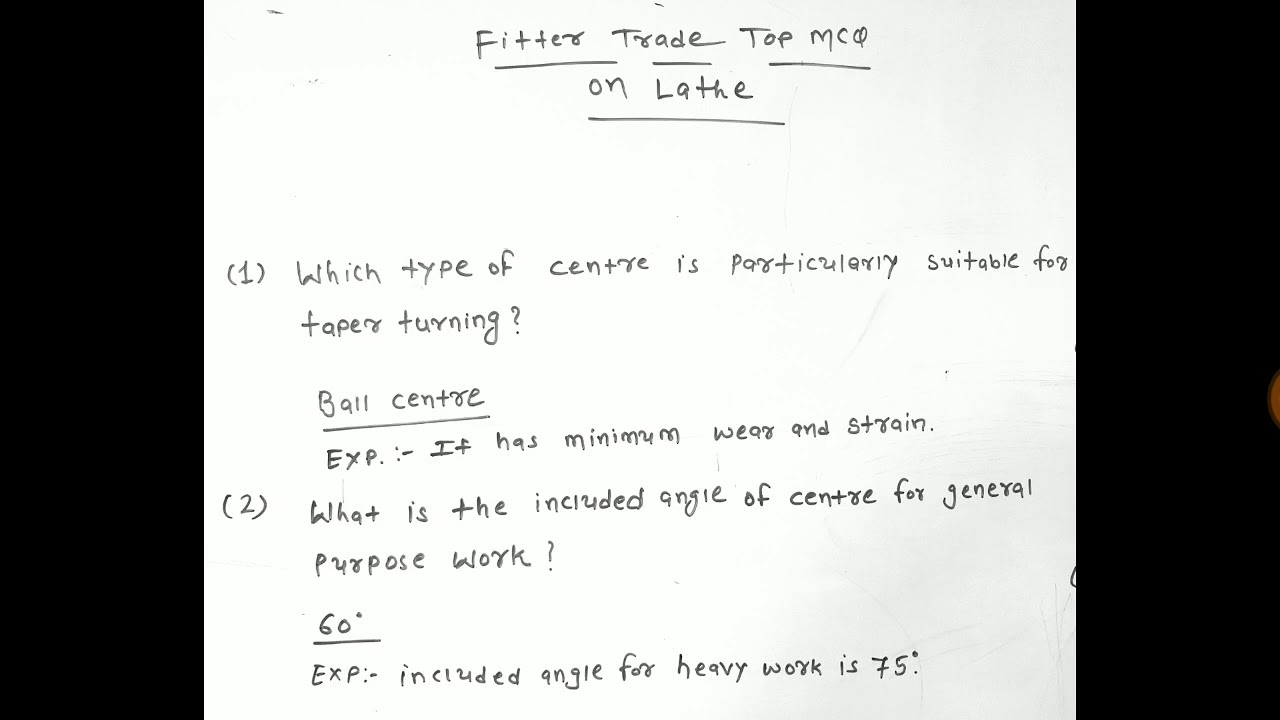 Fitter Trade Top MCQ
on Lathe
(1) Which type of centre is particularly suitable for
taper turning?
Ball centre
Exp. :- It has minimum wear and strain.
(2) What is the included angle of centre for general
purpose work?
60°
Exp:- included angle for heavy work is 75°.